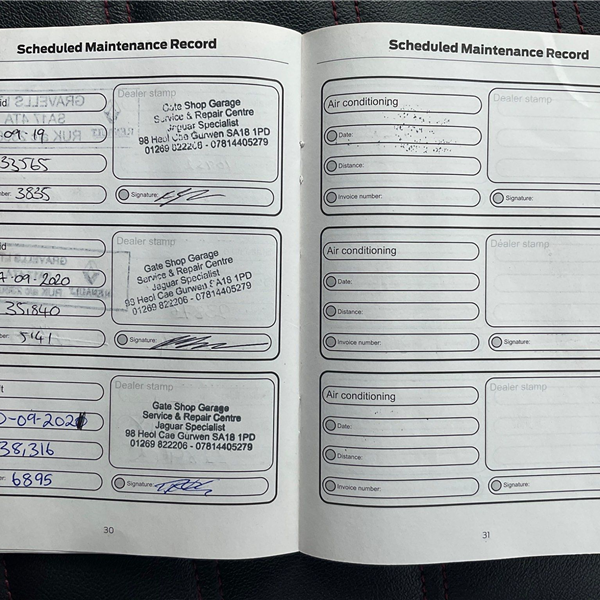 Scheduled Maintenance Record
Dealer stamp
-09-19
33,565
3835
Gate Shop Garage
Service & Repair Centre
Jaguar Specialist
98 Heol Cae Gurwen SA18 1PD
01269 822206 - 07814405279
Signature:
Dealer stamp
-09-2020
35,840
5141
Gate Shop Garage
Service & Repair Centre
Jaguar Specialist
98 Heol Cae Gurwen SA18 1PD
01269 822206 - 07814405279
Signature:
Dealer stamp
-09-2021
38,316
6895
Gate Shop Garage
Service & Repair Centre
Jaguar Specialist
98 Heol Cae Gurwen SA18 1PD
01269 822206 - 07814405279
Signature:
30
Scheduled Maintenance Record
Air conditioning
Dealer stamp
Date:
Distance:
Invoice number:
Signature:
Air conditioning
Dealer stamp
Date:
Distance:
Invoice number:
Signature:
Air conditioning
Dealer stamp
Date:
Distance:
Invoice number:
Signature:
31